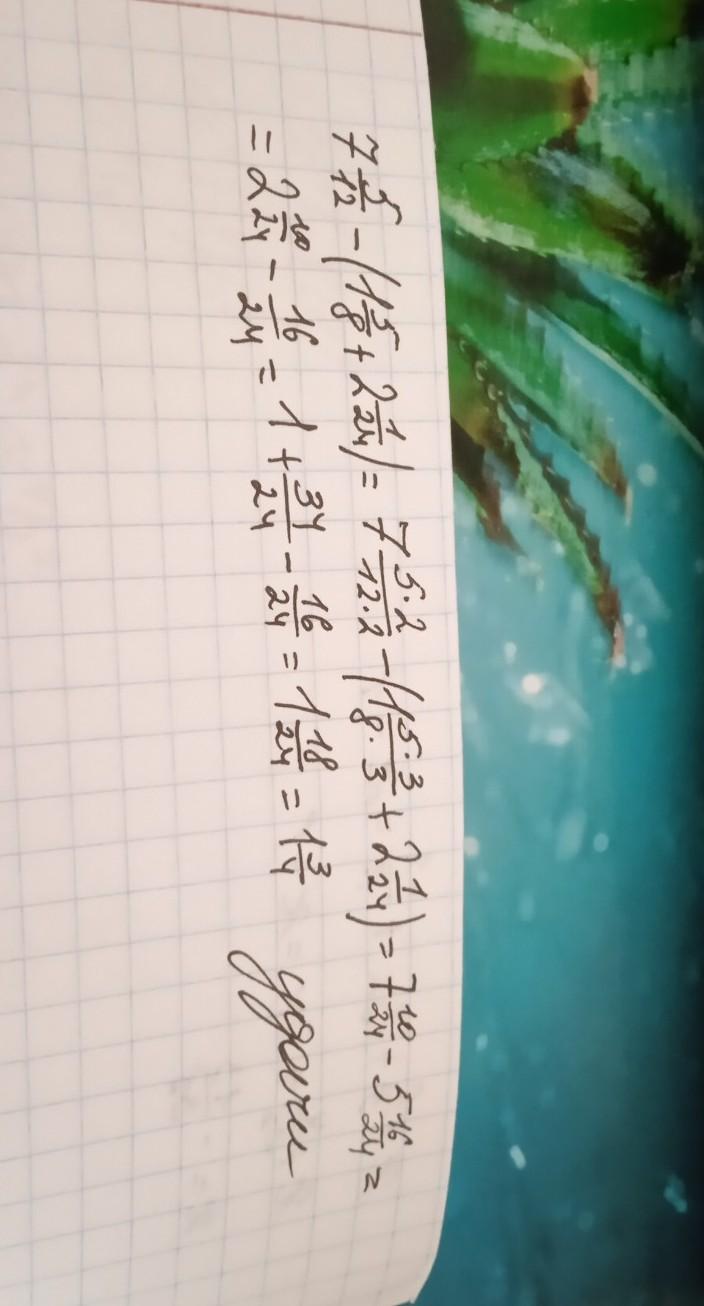 7 5/12 - (1 5/8 + 2 1/24) = 7 5·2/12·2 - (1 5·3/8·3 + 2 1/24) = 7 10/24 - 5 16/24 =
= 2 10/24 - 16/24 = 1 + 34/24 - 16/24 = 1 18/24 = 1 3/4 удачи